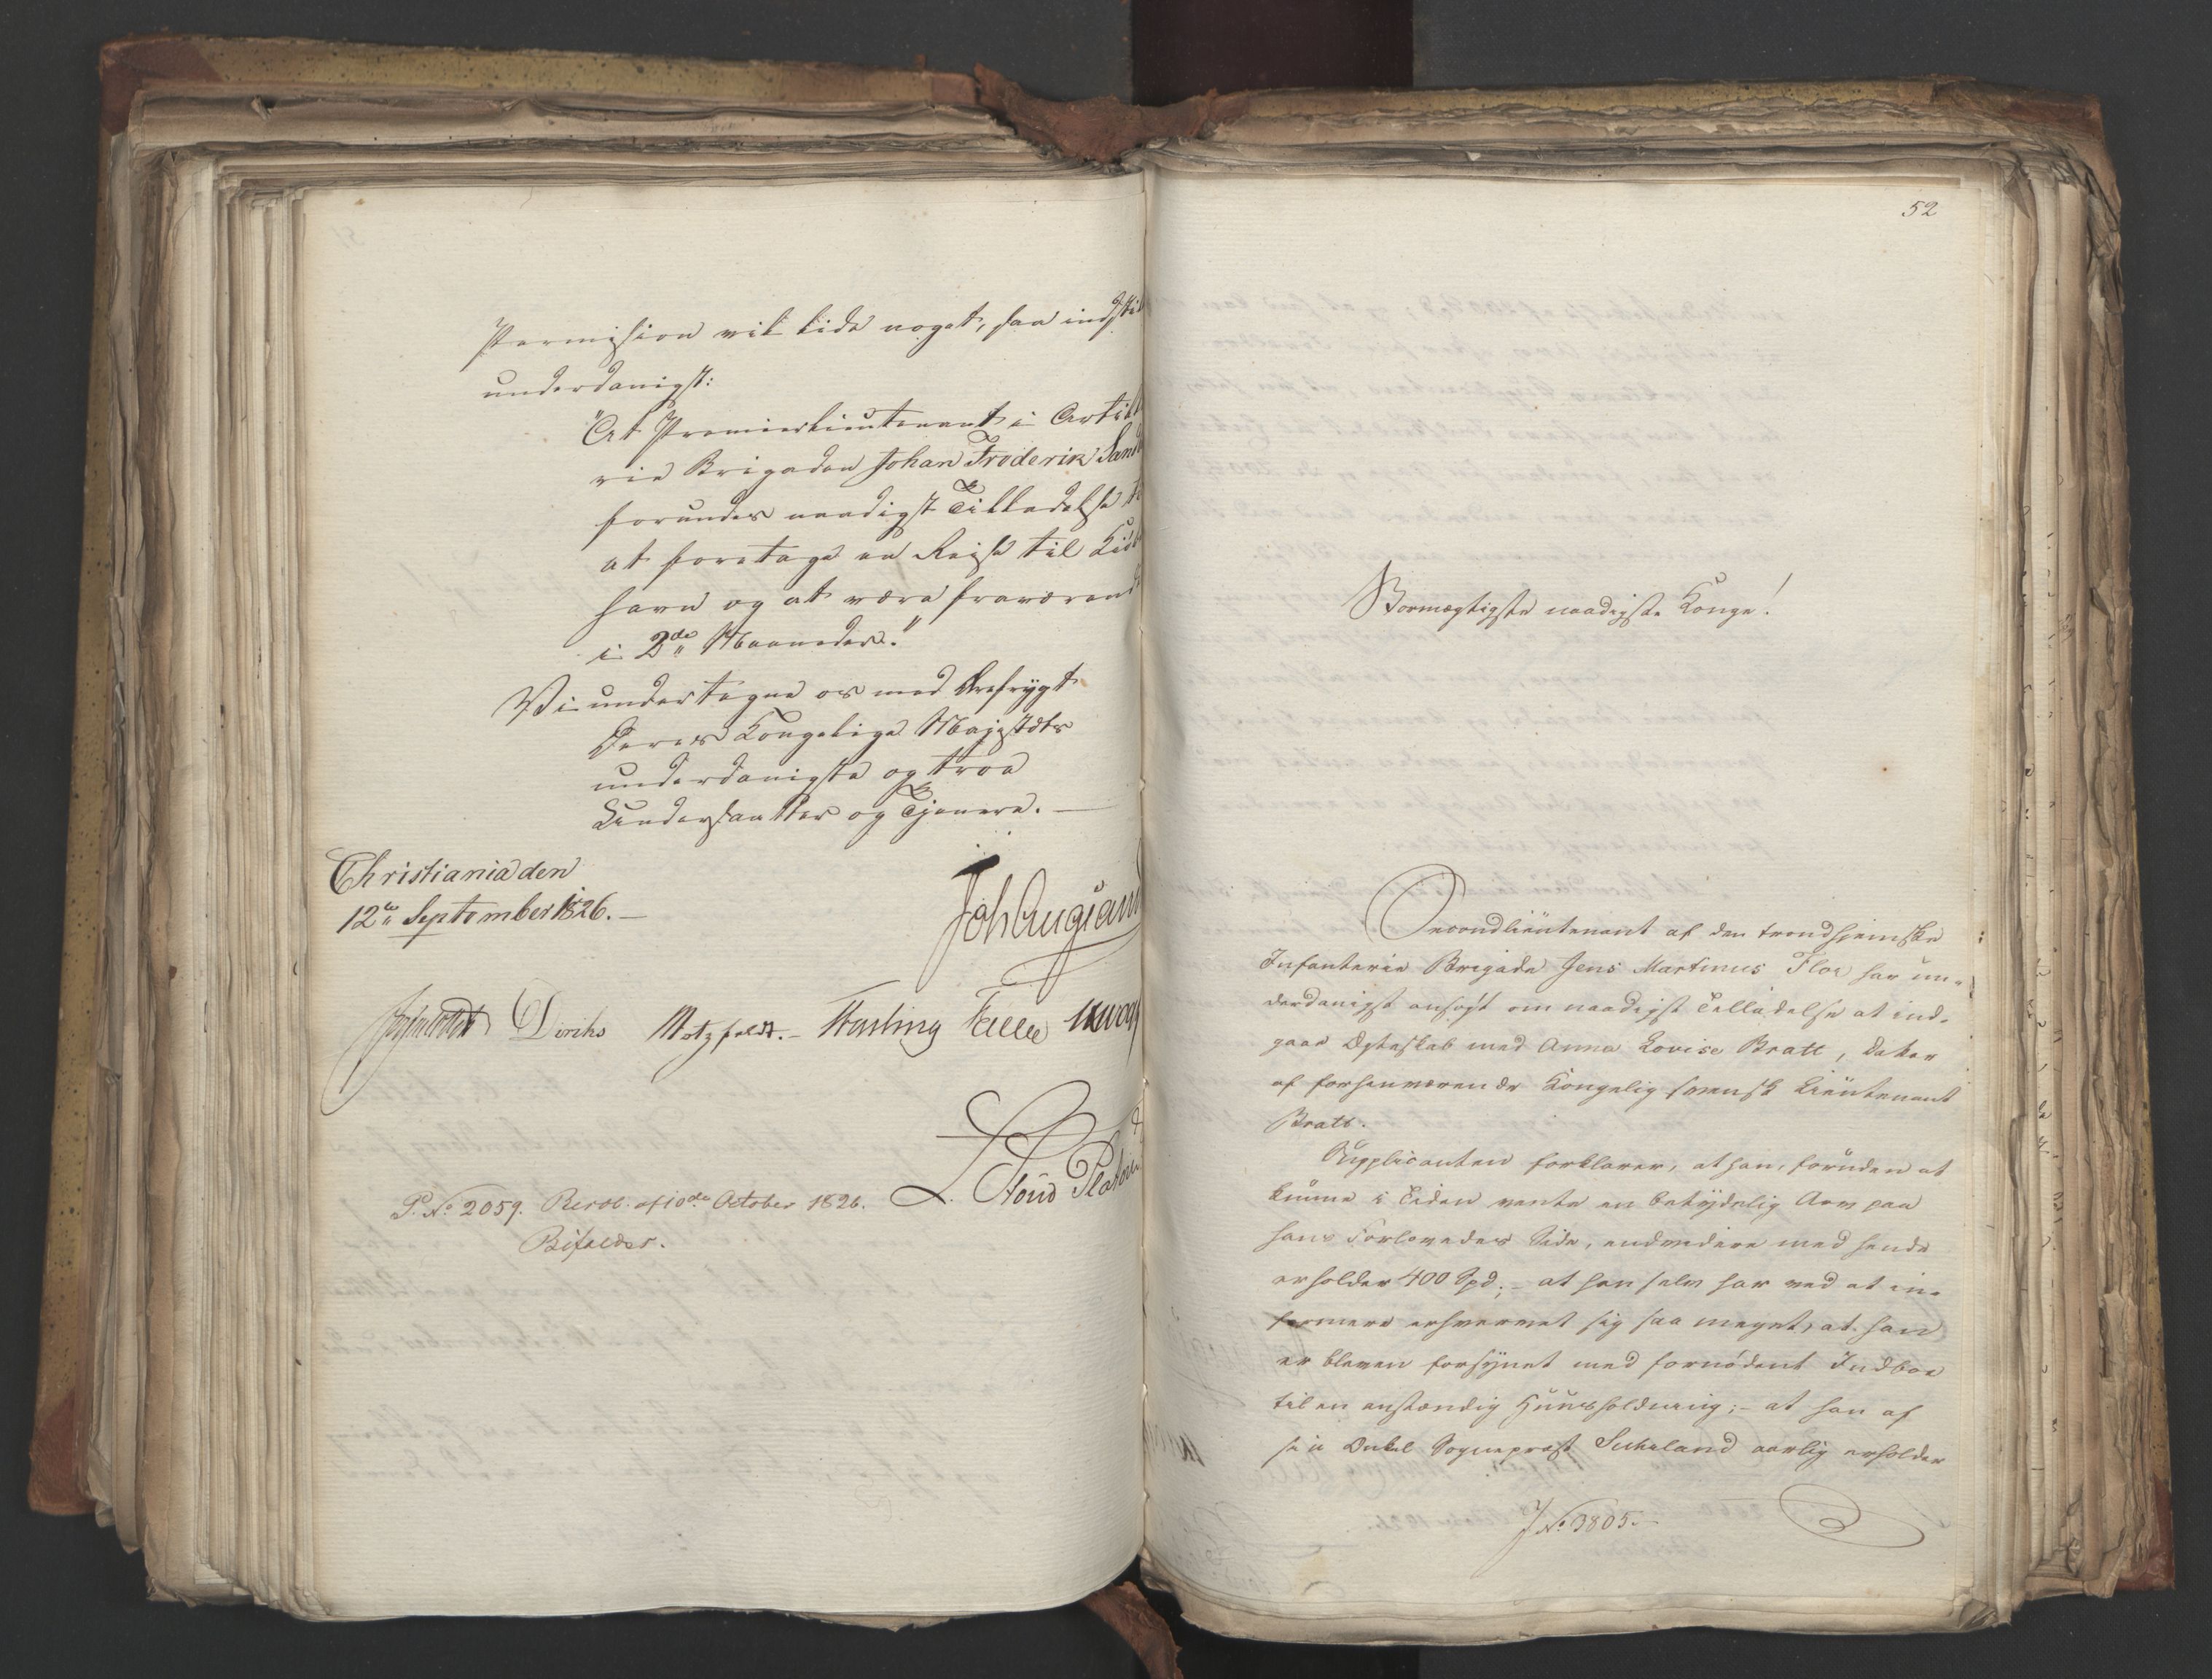 Permission vil lide noget, saa indstil
underdanigst:
"At Premierlieutenant i Artil
rie Brigaden Johan Frederik Sand
forundes naadigst Tilladelse t
at foretage en Reise til Kiöb
havn og at være fraværend
i 2de Maaneder."
Vi undertegne os med Ærefrygt
Deres Kongelige Majestæts
underdanigste og troe
Undersaatter og Tjenere. —
Christiania den
12te September 1826. —
Joh Aug Sand
Diriks Motzfeldt. – Hasting
L. Stoud Platou
P. No 2059. Resol. af 10de October 1826.
Bifaldes.
52
Stormægtigste naadigste Konge!
Secondlieutenant af den trondhjemske
Infanterie Brigade Jens Martinus Flor har un-
derdanigst ansøgt om naadigst Tilladelse at ind-
gaae Ægteskab med Anna Lovise Bratt, Datter
af forhenværende Kongelig svensk Lieutenant
Bratt.
Supplicanten forklarer, at han, foruden at
kunne i Tiden vente en betydelig Arv paa
hans Forlovedes Side, endvidere med hende
erholder 400 Spd; – at han selv har ved at in-
formere erhvervet sig saa meget, at han
er bleven forsynet med fornødent Indboe
til en anstændig Huusholdning; – at han af
sin Onkel Sogneprest Suhrland aarlig erholder
J No 3805. –